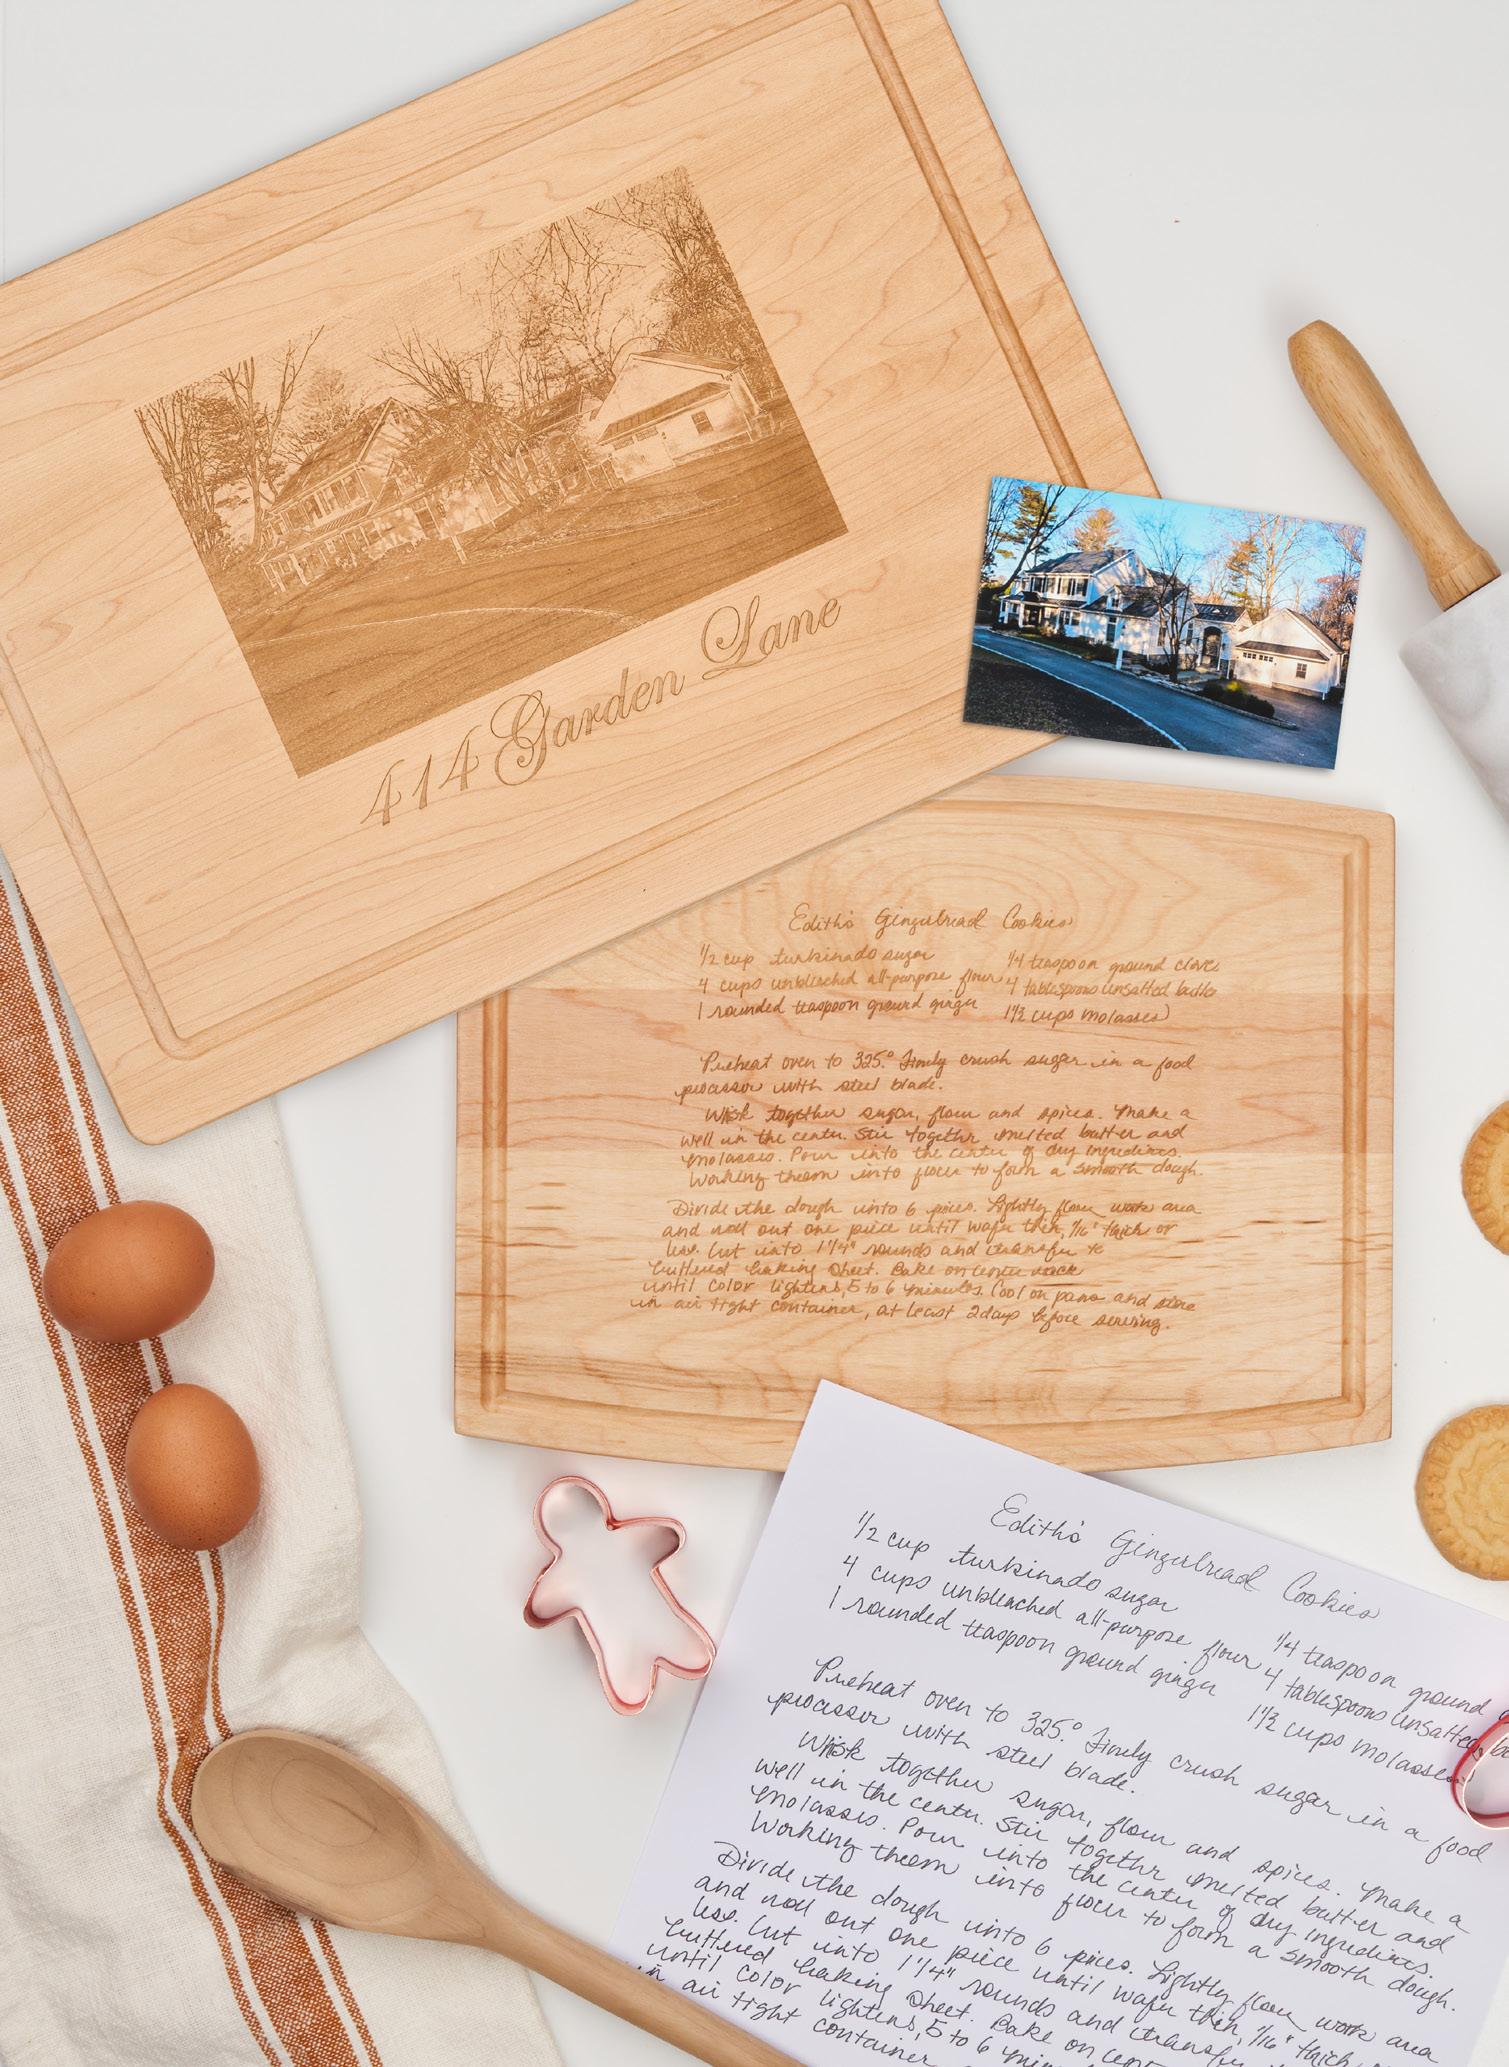 414 Garden Lane
Edith's Gingerbread Cookies
1/2 cup turbinado sugar
4 cups unbleached all-purpose flour
1 rounded teaspoon ground ginger
1/4 teaspoon ground cloves
4 tablespoons unsalted butter
1 1/3 cups molasses
Preheat oven to 325.° Finely crush sugar in a food
processor with steel blade.
Whisk together sugar, flour and spices. Make a
well in the center. Stir together melted butter and
molasses. Pour into the center of dry ingredients.
Working them into flour to form a smooth dough.
Divide the dough into 6 pieces. Lightly flour work area
and roll out one piece until wafer thin, 1/16" thick or
less. Cut into 1 1/4" rounds and transfer to
buttered baking sheet. Bake on center rack
until color lightens, 5 to 6 minutes. Cool on pans and store
in air tight container, at least 2 days before serving.
Edith's Gingerbread Cookies
1/2 cup turbinado sugar
4 cups unbleached all-purpose flour
1 rounded teaspoon ground ginger
1/4 teaspoon ground
4 tablespoons unsalted
1 1/3 cups molasses
Preheat oven to 325.° Finely crush sugar in a food
processor with steel blade.
Whisk together sugar, flour and spices. Make a
well in the center. Stir together melted butter and
molasses. Pour into the center of dry ingredients.
Working them into flour to form a smooth dough.
Divide the dough into 6 pieces. Lightly flour work area
and roll out one piece until wafer thin, 1/16" thick
less. Cut into 1 1/4" rounds and transfer
buttered baking sheet. Bake on
until color lightens, 5 to 6
in air tight container